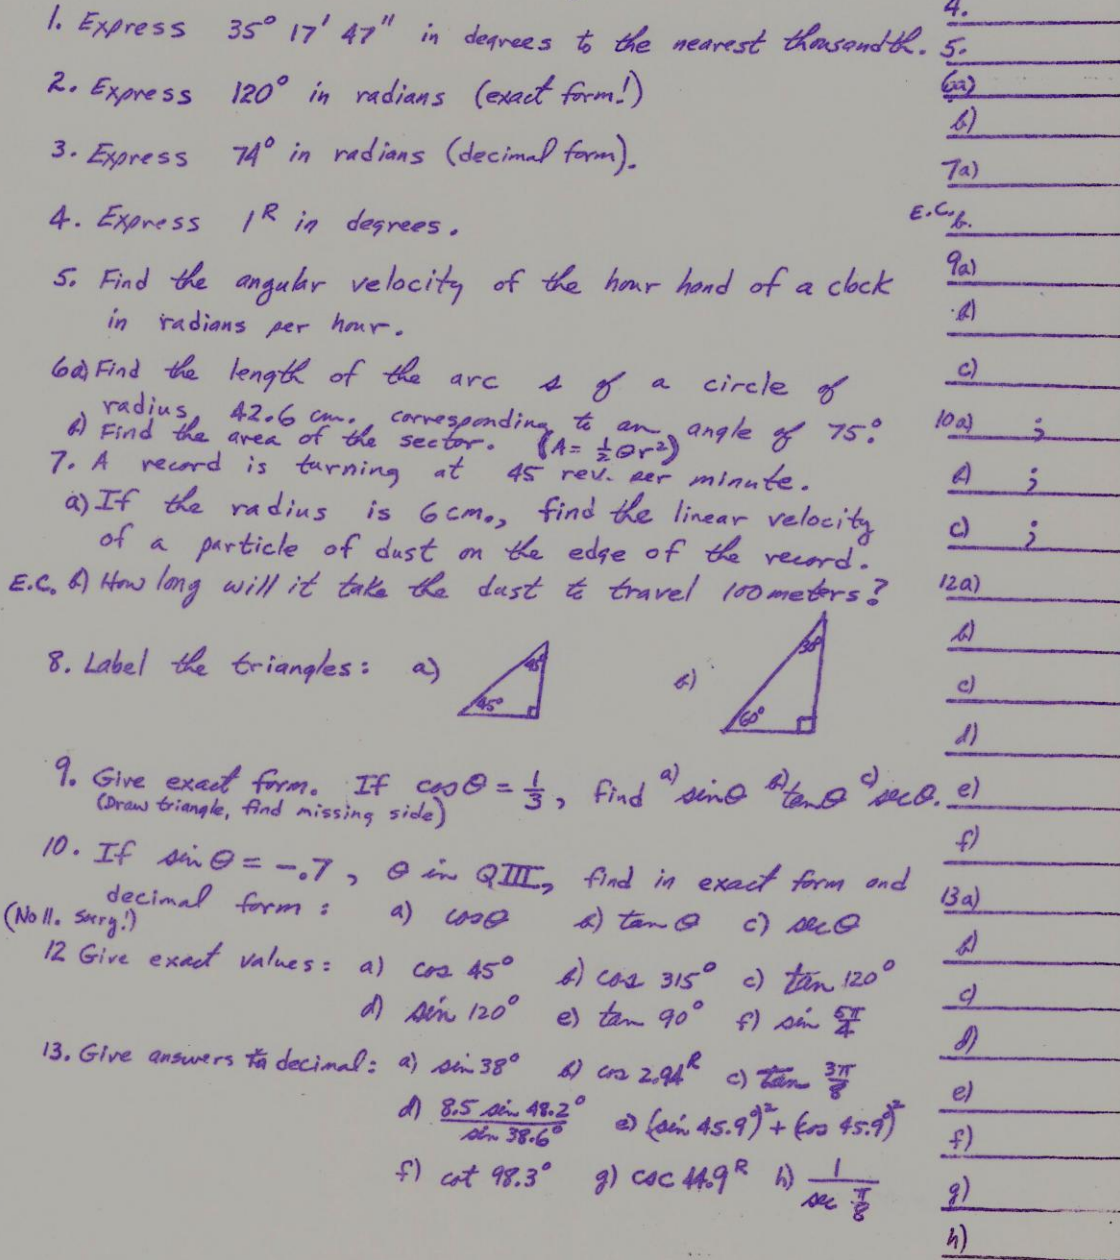 1. Express 35° 17' 47" in degrees to the nearest thousandth.
2. Express 120° in radians (exact form!)
3. Express 74° in radians (decimal form).
4. Express 1ᴿ in degrees.
5. Find the angular velocity of the hour hand of a clock
in radians per hour.
6a) Find the length of the arc s of a circle of
radius 42.6 cm. corresponding to an angle of 75°.
b) Find the area of the sector. (A = ½θr²)
7. A record is turning at 45 rev. per minute.
a) If the radius is 6 cm., find the linear velocity
of a particle of dust on the edge of the record.
E.C. b) How long will it take the dust to travel 100 meters?
8. Label the triangles: a) 45° 45° b) 30° 60°
9. Give exact form. If cos θ = 1/3, find a) sin θ b) tan θ c) sec θ.
(Draw triangle, find missing side)
10. If sin θ = -.7, θ in QIII, find in exact form and
decimal form: a) cos θ b) tan θ c) sec θ
(No 11. Sorry!)
12 Give exact values: a) cos 45° b) cos 315° c) tan 120°
d) sin 120° e) tan 90° f) sin 5π/4
13. Give answers in decimal: a) sin 38° b) cos 2.94ᴿ c) tan 3π/8
d) 8.5 sin 48.2° / sin 38.6° e) (sin 45.9°)² + (cos 45.9°)²
f) cot 98.3° g) csc 44.9ᴿ h) 1 / sec π/8
4.
5.
6a)
b)
7a)
E.C. b.
9a)
b)
c)
10a) ;
b) ;
c) ;
12a)
b)
c)
d)
e)
f)
13a)
b)
c)
d)
e)
f)
g)
h)